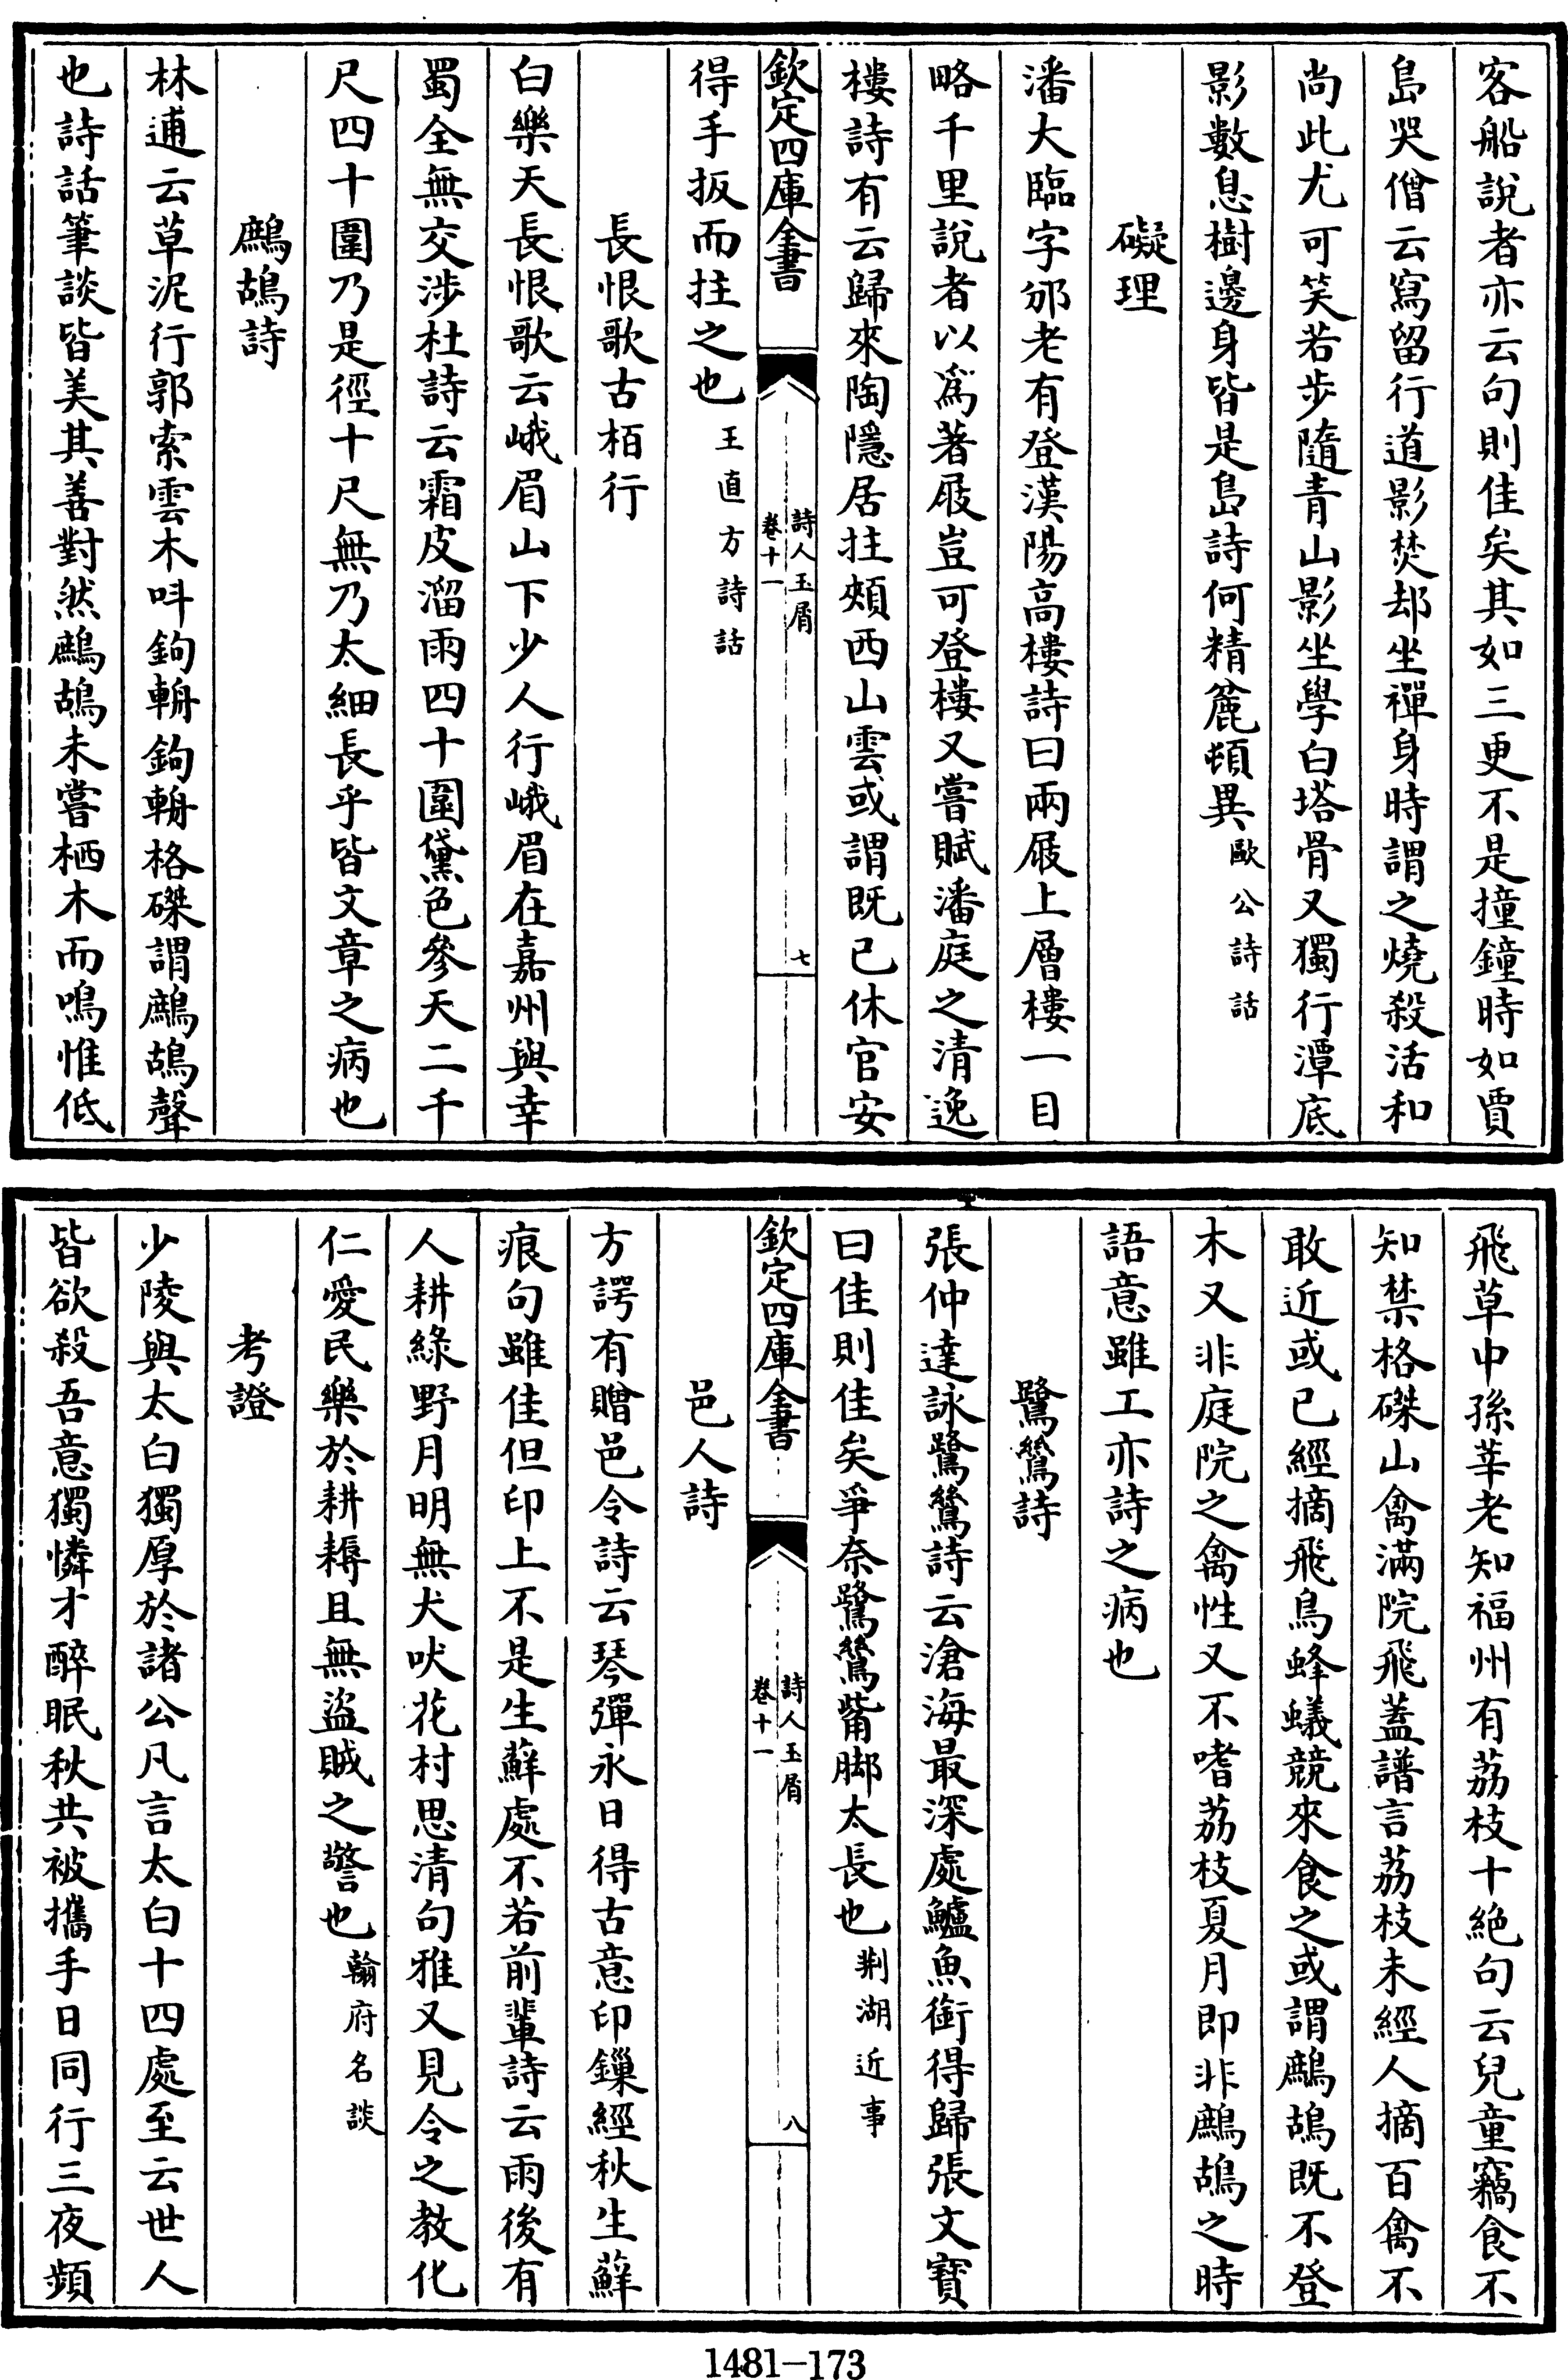 客船說者亦云句則佳矣其如三更不是撞鐘時如賈
島哭僧云寫留行道影焚却坐禪身時謂之燒殺活和
尚此尤可笑若步隨青山影坐學白塔骨又獨行潭底
影數息樹邊身皆是島詩何精麄頓異歐公詩話
礙理
潘大臨字邠老有登漢陽高樓詩曰兩屐上層樓一目
略千里說者以為著屐豈可登樓又嘗賦潘庭之清逸
樓詩有云歸來陶隱居拄頰西山雲或謂既已休官安
欽定四庫全書
詩人玉屑
卷十一
七
得手扳而拄之也王直方詩話
長恨歌古栢行
白樂天長恨歌云峨眉山下少人行峨眉在嘉州與幸
蜀全無交涉杜詩云霜皮溜雨四十圍黛色參天二千
尺四十圍乃是徑十尺無乃太細長乎皆文章之病也
鷓鴣詩
林逋云草泥行郭索雲木呌鉤輈鉤輈格磔謂鷓鴣聲
也詩話筆談皆美其善對然鷓鴣未嘗栖木而鳴惟低
飛草中孫莘老知福州有荔枝十絶句云兒童竊食不
知禁格磔山禽滿院飛蓋譜言荔枝未經人摘百禽不
敢近或已經摘飛鳥蜂蟻競來食之或謂鷓鴣既不登
木又非庭院之禽性又不嗜荔枝夏月即非鷓鴣之時
語意雖工亦詩之病也
鷺鷥詩
張仲達詠鷺鷥詩云滄海最深處鱸魚銜得歸張文寳
曰佳則佳矣爭奈鷺鷥觜脚太長也荆湖近事
欽定四庫全書
詩人玉屑
卷十一
八
邑人詩
方諤有贈邑令詩云琴彈永日得古意印鏁經秋生蘚
痕句雖佳但印上不是生蘚處不若前輩詩云雨後有
人耕綠野月明無犬吠花村思清句雅又見令之教化
仁愛民樂於耕耨且無盜賊之警也翰府名談
考證
少陵與太白獨厚於諸公凡言太白十四處至云世人
皆欲殺吾意獨憐才醉眠秋共被攜手日同行三夜頻
1481-173